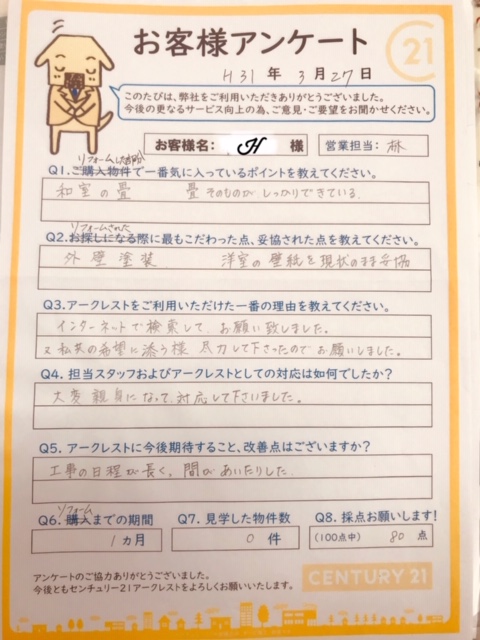 お客様アンケート
21
H31年 3月 27日
このたびは、弊社をご利用いただきありがとうございました。
今後の更なるサービス向上の為、ご意見・ご要望をお聞かせください。
お客様名： H 様 営業担当： 林
リフォームした部分
Q1.ご購入物件で一番気に入っているポイントを教えてください。
和室の畳 畳そのものが しっかりできている。
リフォームされた
Q2.お探しになる際に最もこだわった点、妥協された点を教えてください。
外壁塗装 洋室の壁紙を現状のまま妥協
Q3.アークレストをご利用いただけた一番の理由を教えてください。
インターネットで検索して、お願い致しました。
又私共の希望に添う様 尽力して下さったのでお願いしました。
Q4. 担当スタッフおよびアークレストとしての対応は如何でしたか？
大変親身になって、対応して下さいました。
Q5. アークレストに今後期待すること、改善点はございますか？
工事の日程が長く、間があいたりした。
リフォーム
Q6. 購入までの期間 Q7. 見学した物件数 Q8. 採点お願いします！
1カ月 0 件 (100点中) 80 点
アンケートのご協力ありがとうございました。
今後ともセンチュリー21アークレストをよろしくお願いいたします。
CENTURY 21